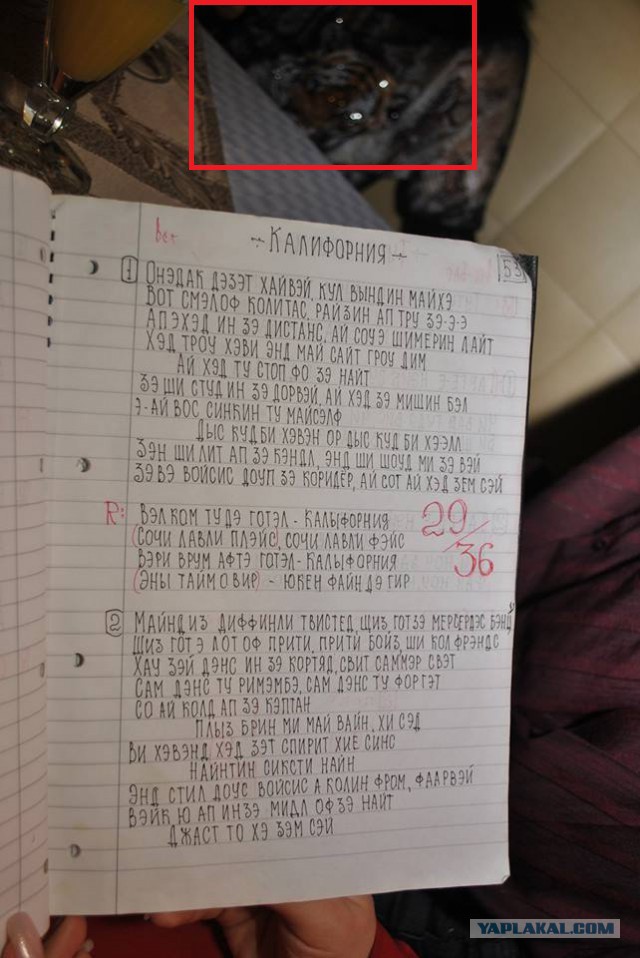 Вет
~ КАЛИФОРНИЯ ~
53
1 ОНЭДАК ДЭЗЭТ ХАЙВЭЙ, КУЛ ВЫНДИН МАЙХЭ
ВОТ СМЭЛОФ КОЛИТАС, РАЙЗИН АП ТРУ ЗЭ-Э-Э
АП ЭХЭД ИН ЗЭ ДИСТАНС, АЙ СОУЭ ШИМЕРИН ЛАЙТ
ХЭД ТРОУ ХЭВИ ЭНД МАЙ САЙТ ГРОУ ДИМ
АЙ ХЭД ТУ СТОП ФО ЗЭ НАЙТ
ЗЭ ШИ СТУД ИН ЗЭ ДОРВЭЙ, АЙ ХЭД ЗЭ МИШИН БЭЛ
Э-АЙ ВОС СИНКИН ТУ МАЙСЭЛФ
ДЫС КУД БИ ХЭВЭН ОР ДЫС КУД БИ ХЭЭЛЛ
ЗЭН ШИ ЛИТ АП ЗЭ КЭНДЛ, ЭНД ШИ ШОУД МИ ЗЭ ВЭЙ
ЗЭ ВЭ ВОЙСИС ДОУП ЗЭ КОРИДЁР, АЙ СОТ АЙ ХЭД ЗЕМ СЭЙ
R: ВЭЛКОМ ТУ ДЭ ГОТЭЛ - КАЛЫФОРНИЯ
(СОЧИ ЛАВЛИ ПЛЭЙС), СОЧИ ЛАВЛИ ФЭЙС
ВЭРИ ВРУМ АФТЭ ГОТЭЛ - КАЛЫФОРНИЯ
(ЭНЫ ТАЙМ О ВИР) - ЮКЕН ФАЙН ДЭ ГИР
29/36
2 МАЙНД ИЗ ДИФФИНЛИ ТВИСТЕД, ЩИЗ ГОТ ЗЭ МЕРСЕРДЭС БЭНДЗ
ШИЗ ГОТ Э ЛОТ ОФ ПРИТИ, ПРИТИ БОЙЗ, ШИ КОЛ ФРЭНДС
ХАУ ЗЭЙ ДЭНС ИН ЗЭ КОРТЯД, СВИТ САММЭР СВЭТ
САМ ДЭНС ТУ РИМЭМБЭ, САМ ДЭНС ТУ ФОРГЭТ
СО АЙ КОЛД АП ЗЭ КЭПТАН
ПЛЫЗ БРИН МИ МАЙ ВАЙН, ХИ СЭД
ВИ ХЭВЭНД ХЭД ЗЭТ СПИРИТ ХИЕ СИНС
НАЙНТИН СИКСТИ НАЙН
ЭНД СТИЛ ДОУС ВОЙСИС А КОЛИН ФРОМ, ФААРВЭЙ
ВЭЙК Ю АП ИН ЗЭ МИДЛ ОФ ЗЭ НАЙТ
ДЖАСТ ТО ХЭ ЗЭМ СЭЙ
YAPLAKAL.COM